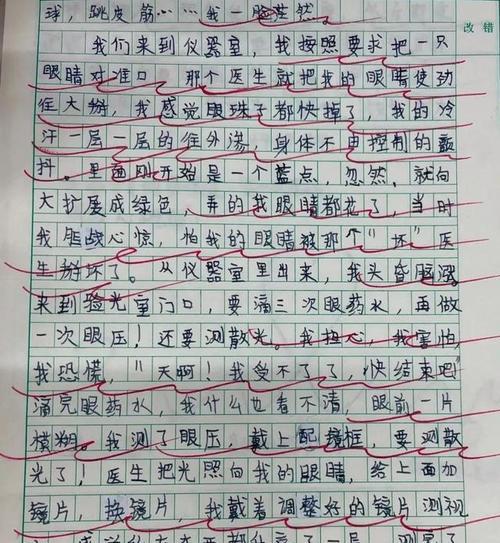 球，跳皮筋……我一脸茫然
改错
我们来到仪器室，我按照要求把一只
眼睛对准口 那个医生就把我的眼睛使劲
往大掰，我感觉眼珠子都快掉了，我的冷
汗一层一层的往外渗，身体不由控制的颤
抖。里面刚开始是一个蓝点，忽然，就向
大扩展成绿色，弄的我眼睛都花了，当时
我胆战心惊，怕我的眼睛被那个"坏"医
生掰坏了。从仪器室里出来，我头昏脑涨。
来到验光室门口，要滴三次眼药水，再做
一次眼压！还要测散光。我担心，我害怕，
我恐慌，"天啊！我受不了了，快结束吧"
滴完眼药水，我什么也看不清，眼前一片
模糊。我测了眼压，戴上配镜框，要测散
光了！医生把光照向我的眼睛，给上面加
镜片，换镜片，我戴着调整好的镜片测视